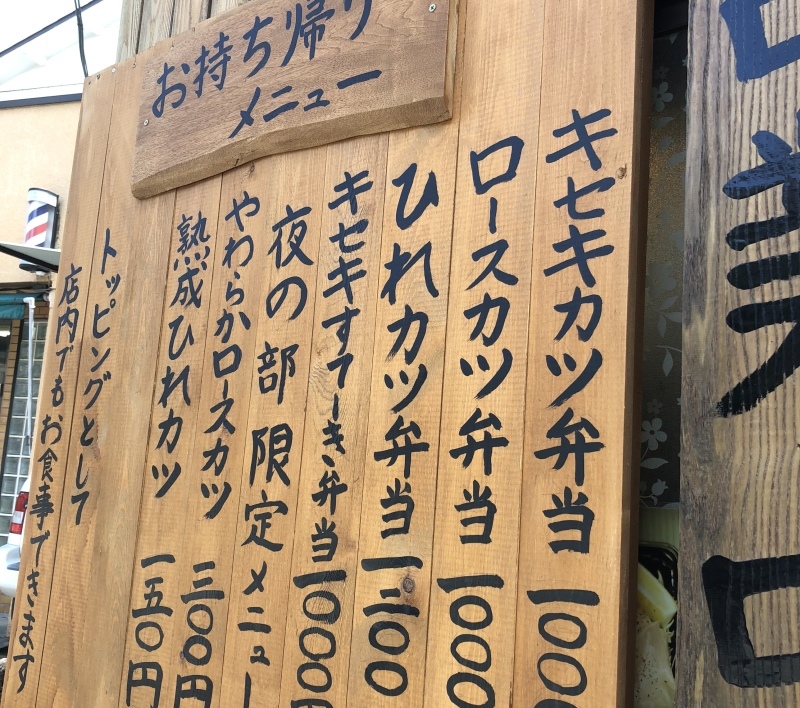 お持ち帰り
メニュー
キセキカツ弁当 一〇〇〇
ロースカツ弁当 一〇〇〇
ひれカツ弁当 一二〇〇
キセキすてーき弁当 一〇〇〇円
夜の部 限定メニュー
やわらかロースカツ 三〇〇円
熟成ひれカツ 一五〇円
トッピングとして
店内でもお食事できます